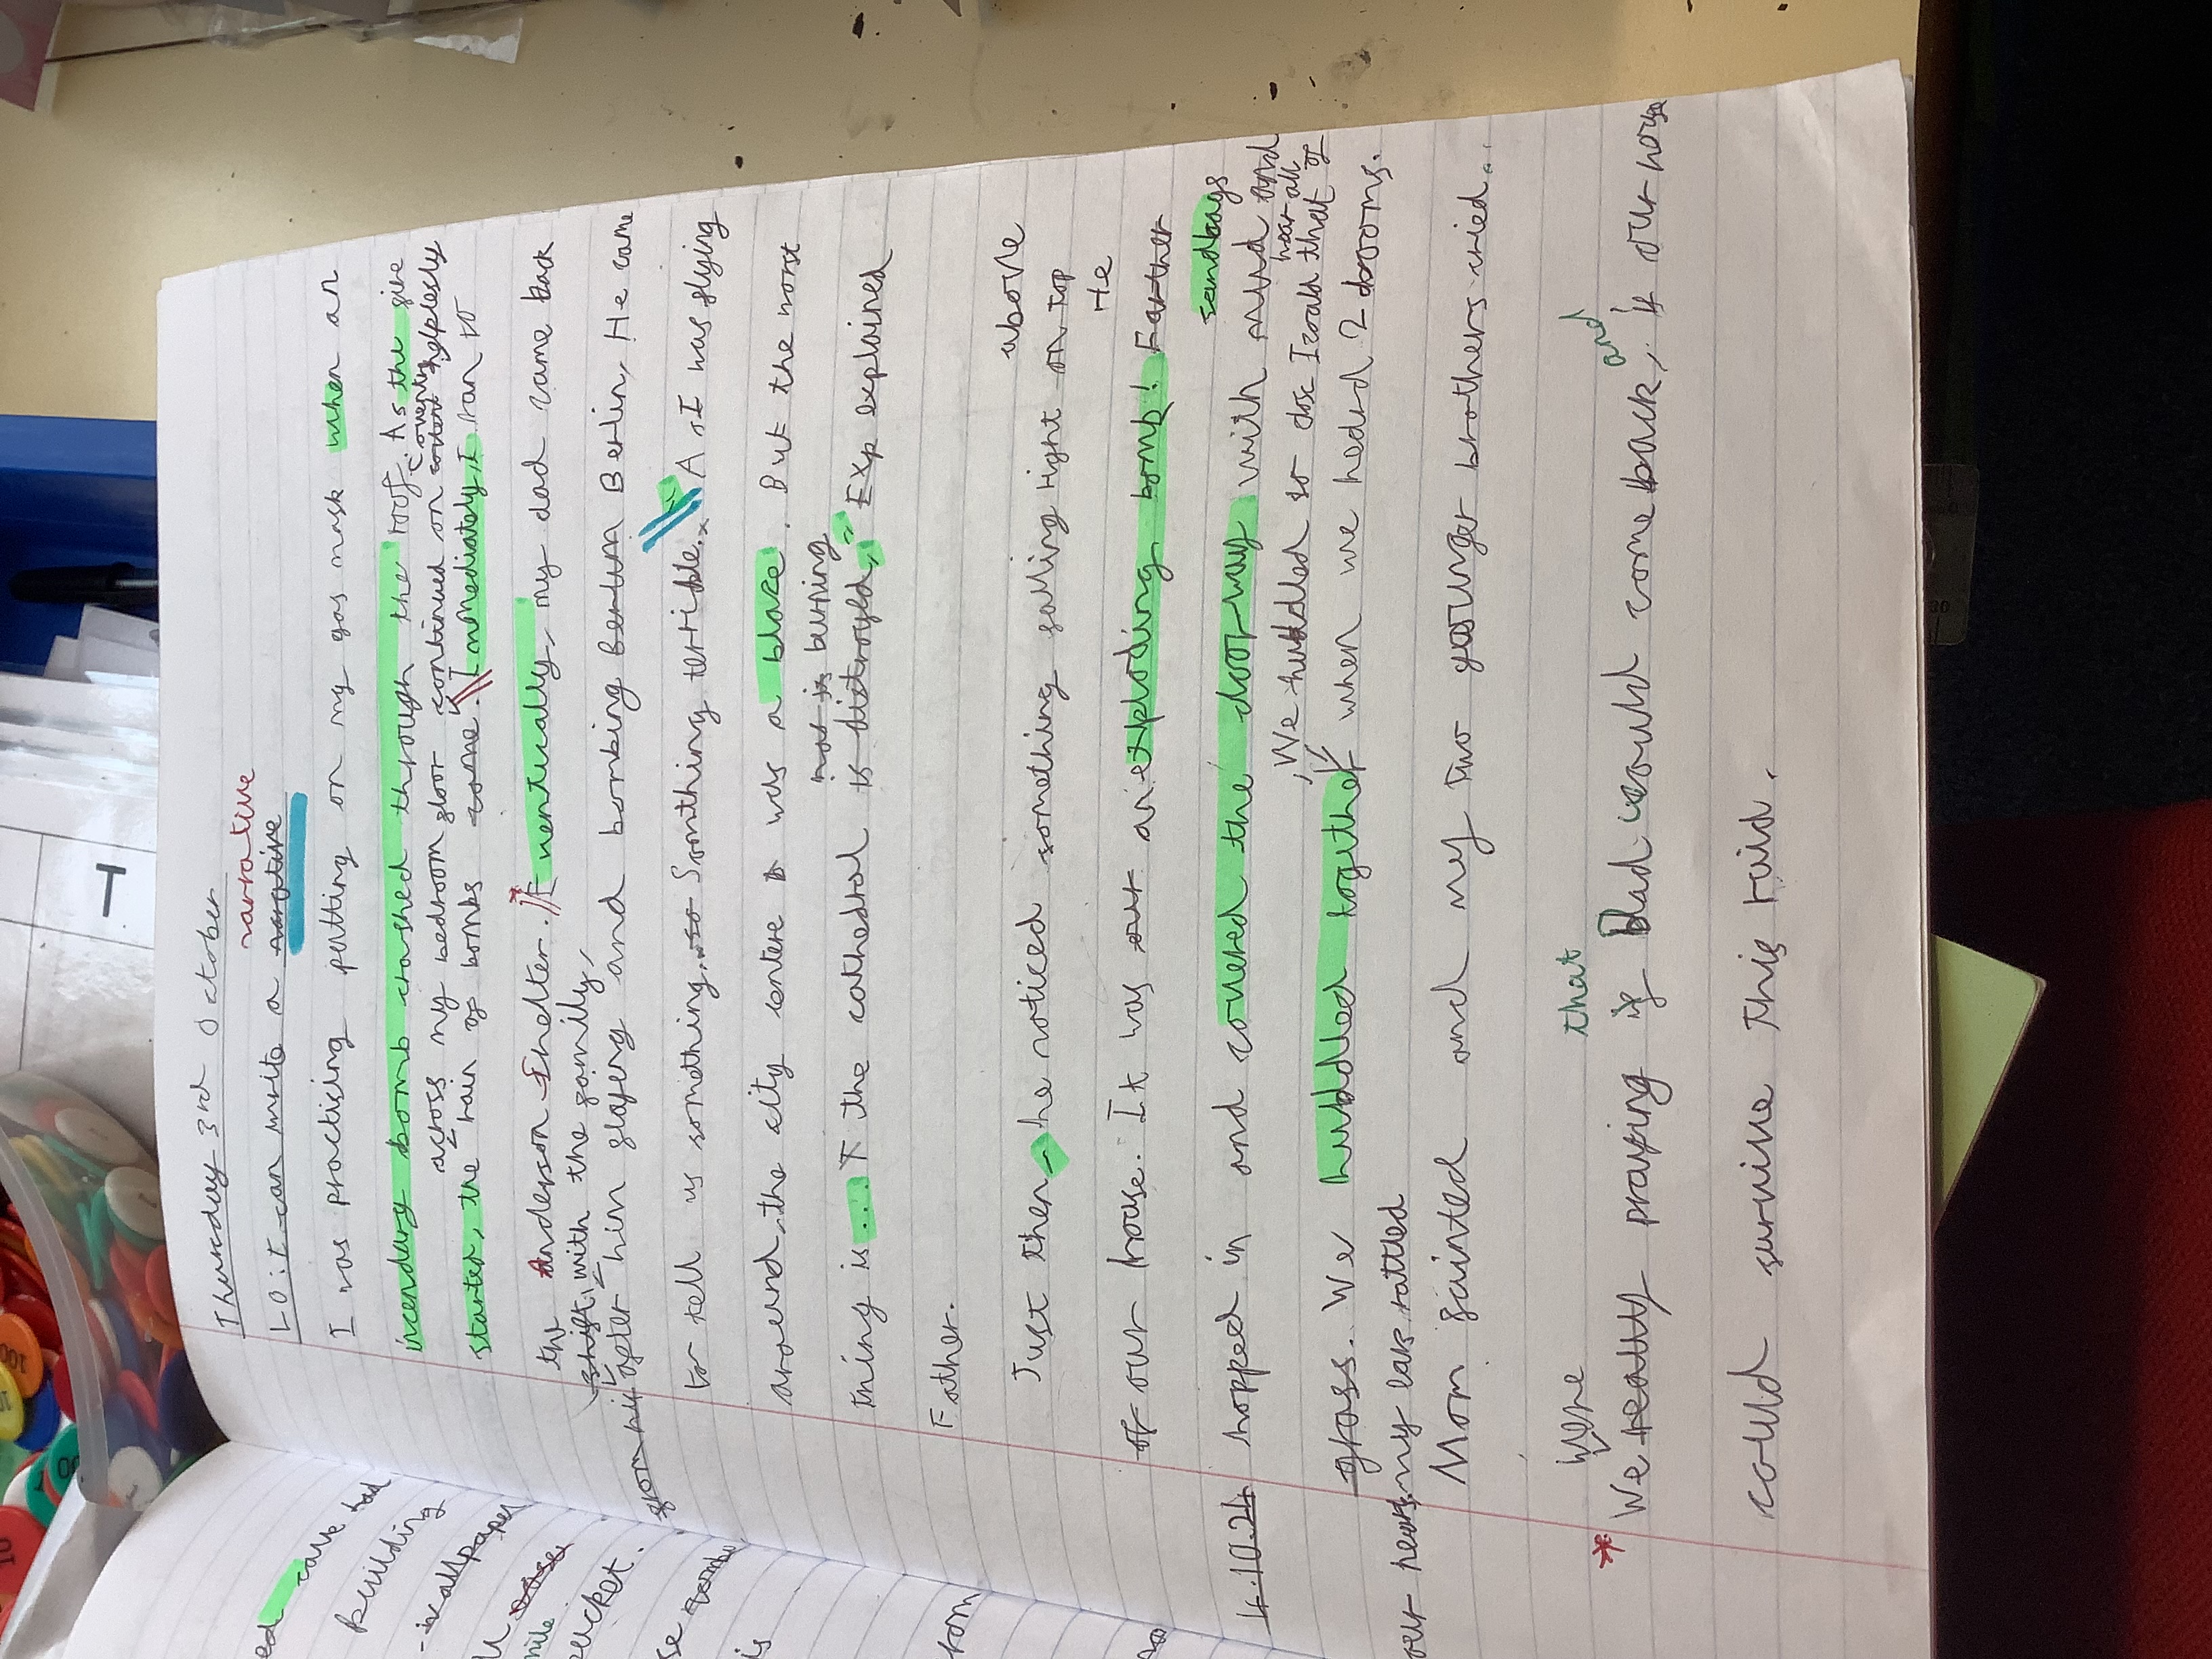 Thursday 3rd October
narrative
LO: I can write a narqtive
I was practicing putting on my gas mask when an
incendary bomb crashed through the roof. As the fire
across my bedroom floor continued on coventry helplessly
Starter, the rain of bombs come. Immediately, I ran to
the Anderson Shelter. // E-ventually, my dad came back
shift, with the family,
from hi after him flafeng and bombing Berlin, He came
to tell us something. so Somthing terrible.. A I was flying
around, the city centere was a blaze. But the worst
not is burning
thing is... T the cathedral is distroyld," Exp explained
Father.
above
Just then - he noticed something falling right on top
He
of our house. It was our an exploding bomb! Farther
sandbags
4.10.24 hopped in and covered the door-way with mud and
We huddled so closc I could hear all of that
grass. We huddled together when we heard 2 dooms.
our hears. my ears rattled
Mom fainted and my two younger brothers cried...
were that and
* We really praying if Dad would come back, if our house
could survive this raid.
T
100
10
30
ed care had
building
wallpaper
bucket.
is